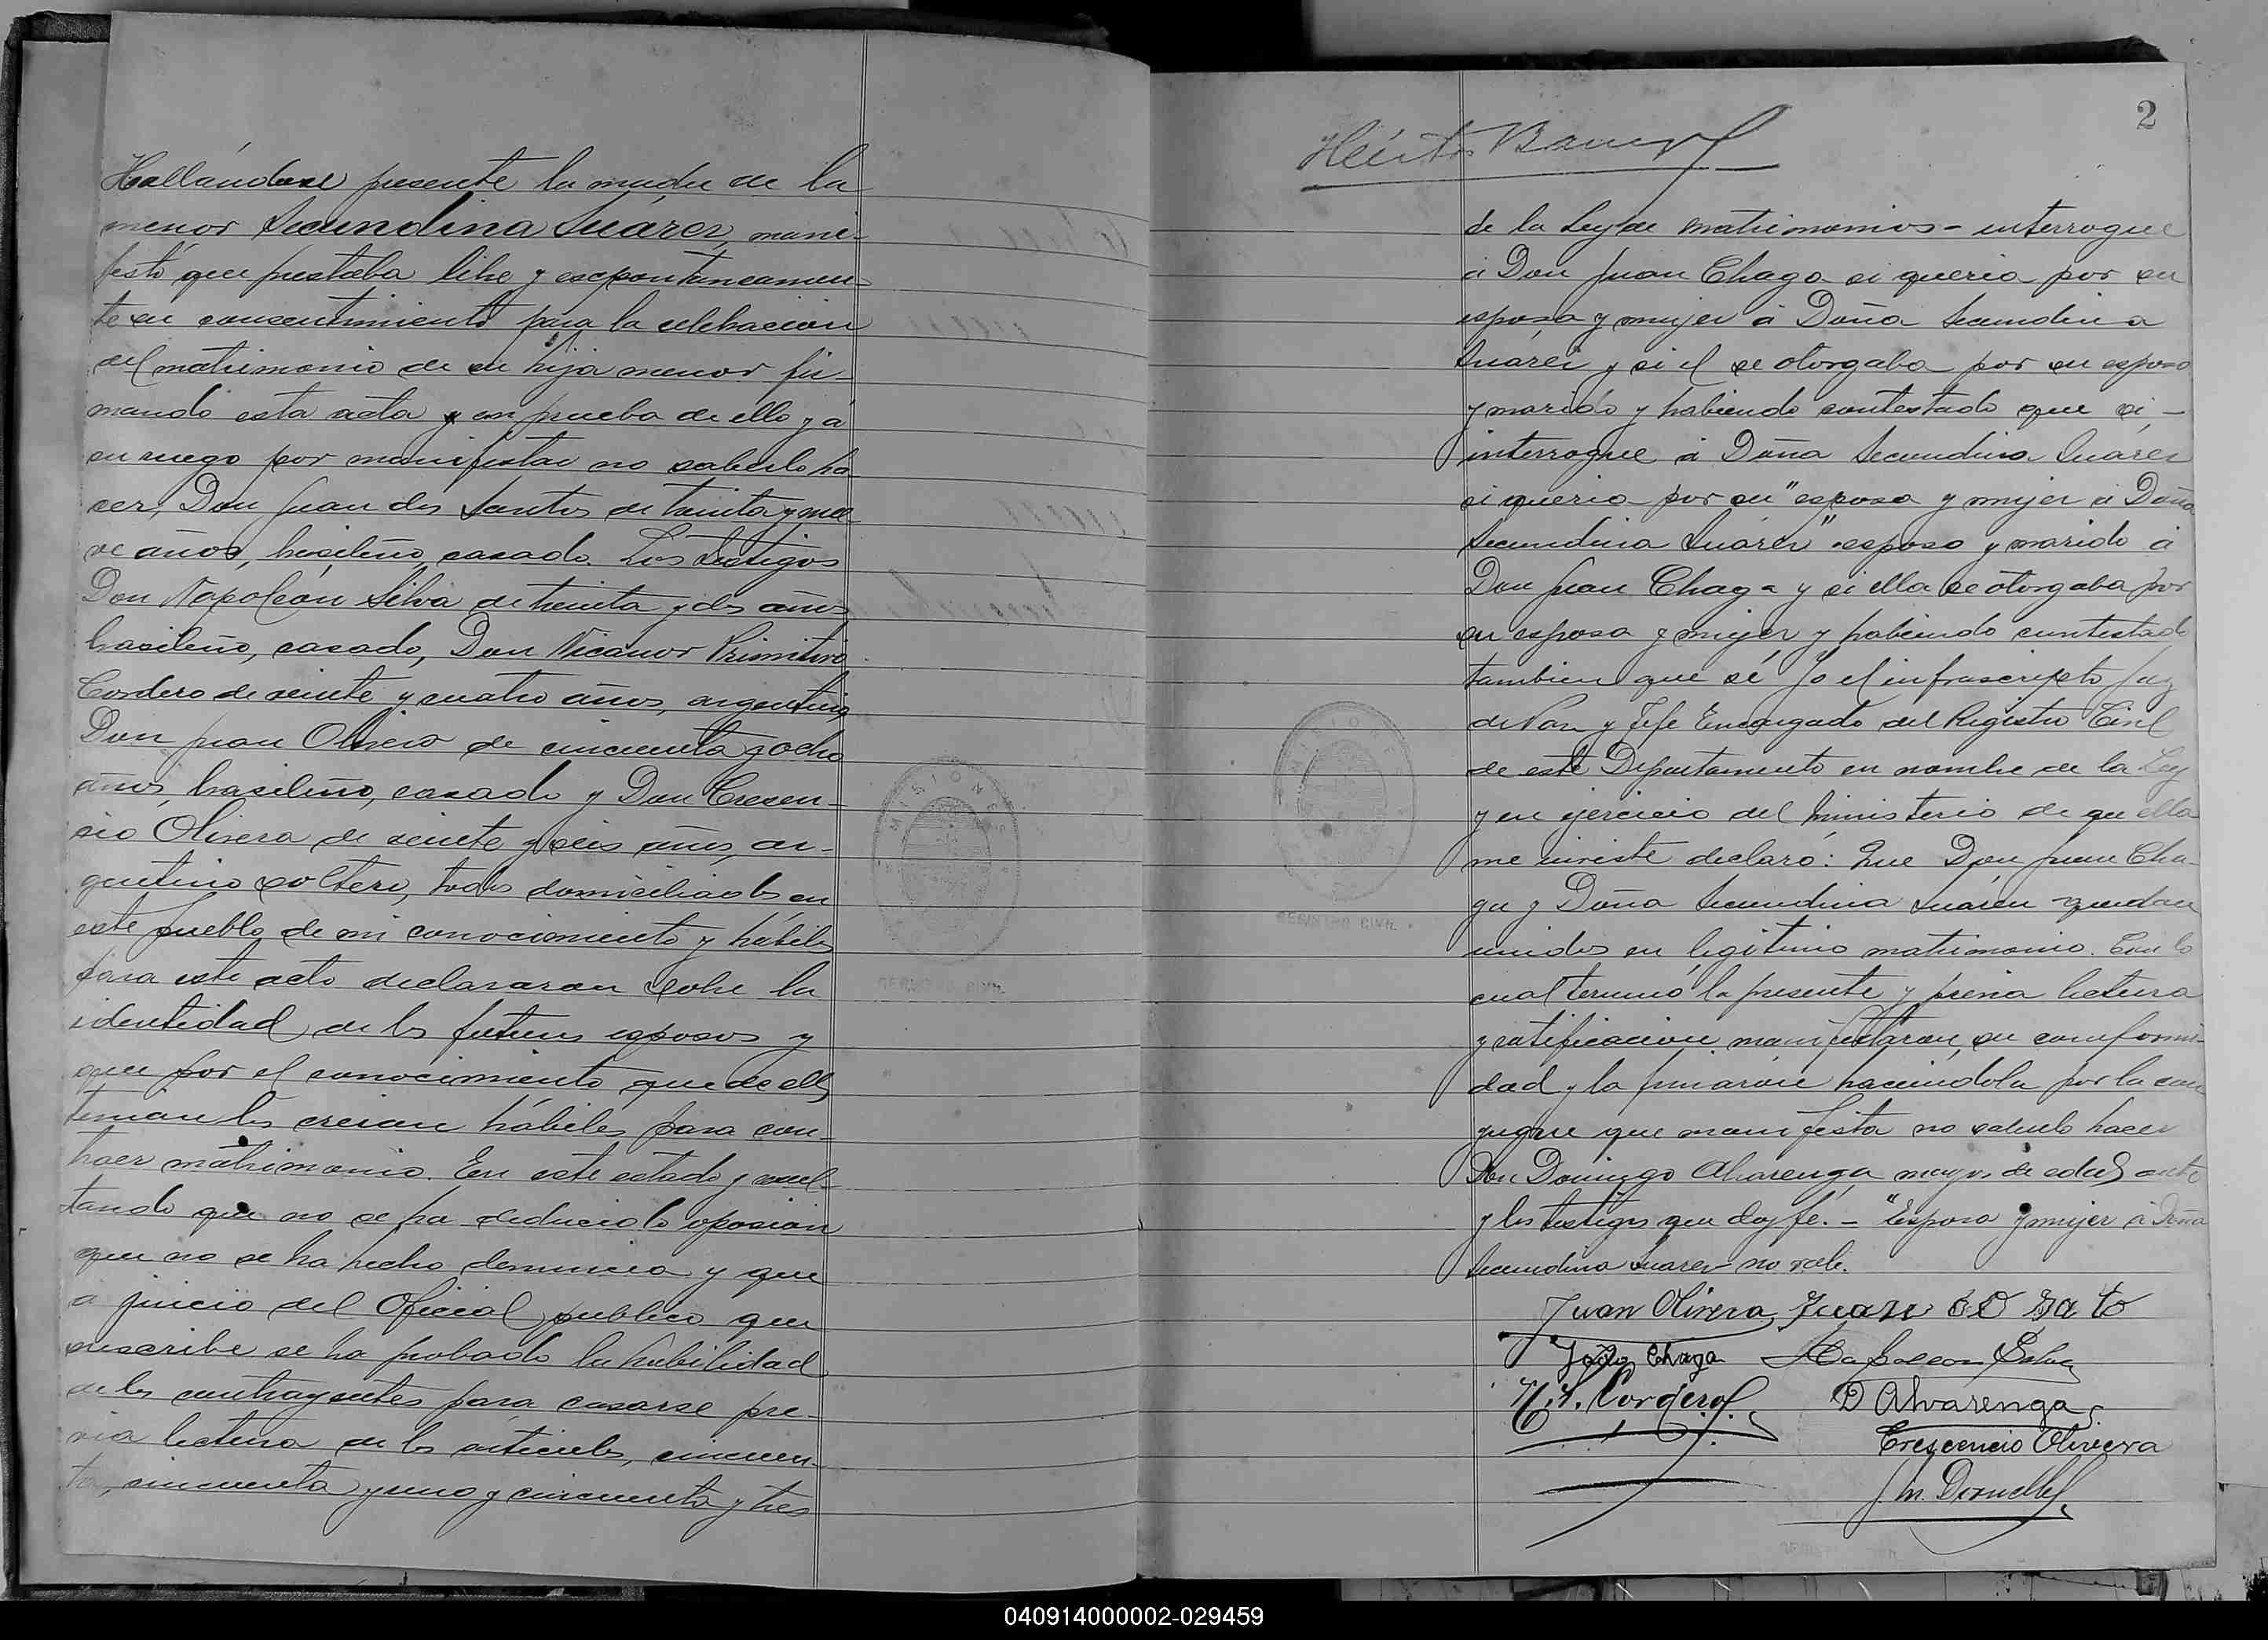 Hallándose presente la madre de la
menor Secundina Suárez, mani-
festó que prestaba libre y escpontaneamen-
te su consentimiento para la celebracion
del matrimonio de su hija menor fir-
mando esta acta y en prueba de ello y á
su ruego por manifestar no saberlo ha
cer, Don Juan dos Santos de treinta y nue
ve años, brasileño, casado. Los testigos
Don Napoleón Silva de treinta y dos años
brasileño, casado, Don Nicanor Primitivo
Cordero de veinte y cuatro años, argentino
Don Juan Olivera de cincuenta y ocho
años, brasileño, casado y Don Crecen-
cio Olivera de veinte y seis años, ar-
gentino soltero, todos domiciliados en
este pueblo de mi conocimiento y hábiles
para este acto declararon sobre la
identidad de los futuros esposos y
que por el conocimiento que de ellos
tenian los creian hábiles para con-
traer matrimonio. En este estado y resul-
tando que no se ha deducido oposicion
que no se ha hecho denuncia y que
a juicio del Oficial publico que
suscribe se ha probado la habilidad
de los contrayentes para casarse pre-
via lectura de los articulos, cincuen-
ta, cincuenta y uno y cincuenta y tres
2
Héctor
de la Ley de matrimonios - interrogue
á Don Juan Chaga si queria por su
esposa y mujer á Doña Secundina
Suárez y si el se otorgaba por su esposo
y marido y habiendo contestado que si -
interrogue á Doña Secundina Suárez
si queria por su "esposa y mujer á Doña
Secundina Suárez" esposo y marido á
Don Juan Chaga y si ella se otorgaba por
su esposa y mujer y habiendo contestado
tambien que sí Yo el infrascripto Juez
de Paz y Jefe Encargado del Registro Civil
de este Departamento en nombre de la Ley
y en ejercicio del ministerio de que ella
me inviste declaró: Que Don Juan Cha-
ga y Doña Secundina Suárez quedan
unidos en legitimo matrimonio. Con lo
cual terminó la presente y previa lectura
y ratificacion manifestaron su conformi-
dad y la firmaron haciendola por la con
yugue que manifesta no saberlo hacer
Don Domingo Alvarenga mayor de edad ante
y los testigos que doy fe. - "Esposa y mujer á Doña
Secundina Suarez" no vale.
Juan Olivera Juan
João Chaga Napoleon Silva
N. P. Cordero D Alvarenga
Crescencio Olivera
J. M.
MISIONES
REGISTRO CIVIL
MISIONES
REGISTRO CIVIL
040914000002-029459